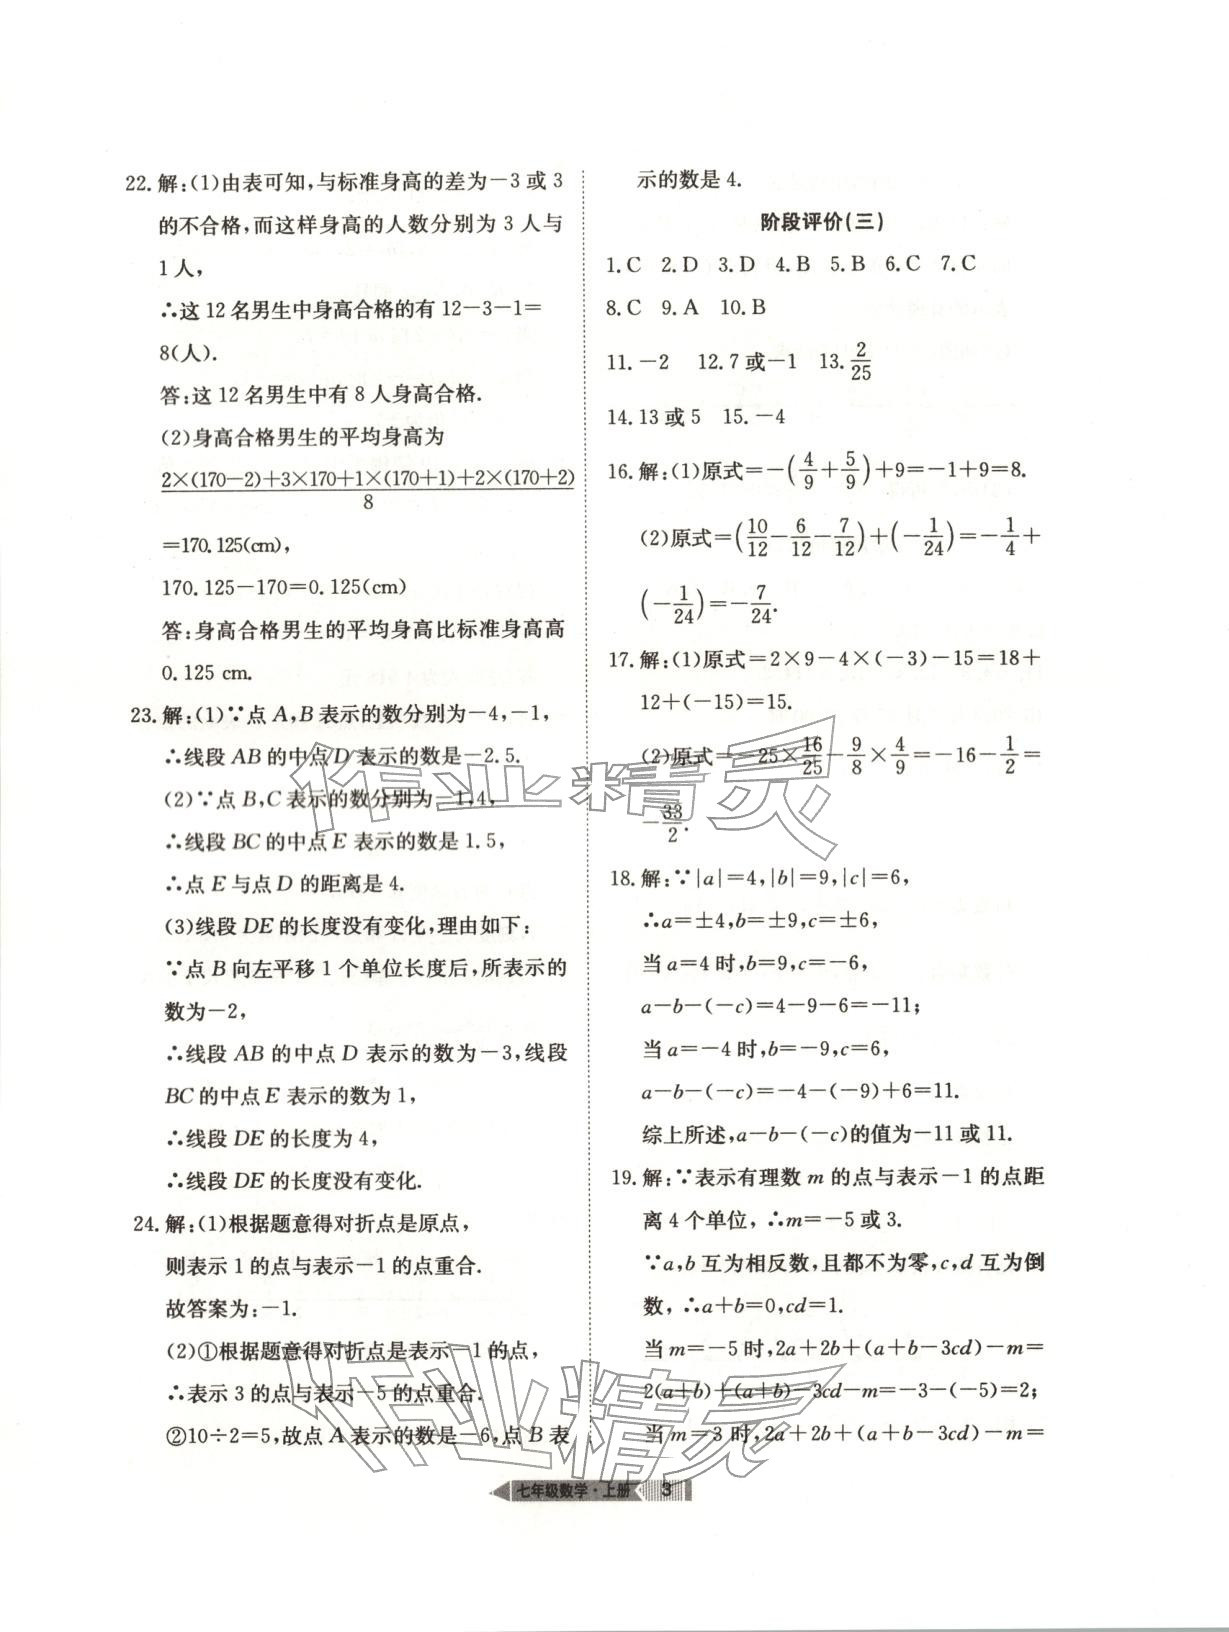 22. 解:(1)由表可知,与标准身高的差为－3 或 3
的不合格,而这样身高的人数分别为 3 人与
1 人,
∴这 12 名男生中身高合格的有 12－3－1＝
8(人).
答:这 12 名男生中有 8 人身高合格.
(2)身高合格男生的平均身高为
2×(170－2)＋3×170＋1×(170＋1)＋2×(170＋2)
8
＝170.125(cm),
170.125－170＝0.125(cm)
答:身高合格男生的平均身高比标准身高高
0.125 cm.
23. 解:(1)∵点 A,B 表示的数分别为－4,－1,
∴线段 AB 的中点 D 表示的数是－2.5.
(2)∵点 B,C 表示的数分别为－1,4,
∴线段 BC 的中点 E 表示的数是 1.5,
∴点 E 与点 D 的距离是 4.
(3)线段 DE 的长度没有变化,理由如下:
∵点 B 向左平移 1 个单位长度后,所表示的
数为－2,
∴线段 AB 的中点 D 表示的数为－3,线段
BC 的中点 E 表示的数为 1,
∴线段 DE 的长度为 4,
∴线段 DE 的长度没有变化.
24. 解:(1)根据题意得对折点是原点,
则表示 1 的点与表示－1 的点重合.
故答案为:－1.
(2)①根据题意得对折点是表示－1 的点,
∴表示 3 的点与表示－5 的点重合.
②10÷2＝5,故点 A 表示的数是－6,点 B 表
示的数是 4.
阶段评价(三)
1. C 2. D 3. D 4. B 5. B 6. C 7. C
8. C 9. A 10. B
11. －2 12. 7 或－1 13. 2/25
14. 13 或 5 15. －4
16. 解:(1)原式＝－(4/9＋5/9)＋9＝－1＋9＝8.
(2)原式＝(10/12－6/12－7/12)＋(－1/24)＝－1/4＋
(－1/24)＝－7/24.
17. 解:(1)原式＝2×9－4×(－3)－15＝18＋
12＋(－15)＝15.
(2)原式＝－25×16/25－9/8×4/9＝－16－1/2＝
－33/2.
18. 解:∵|a|＝4,|b|＝9,|c|＝6,
∴a＝±4,b＝±9,c＝±6,
当 a＝4 时,b＝9,c＝－6,
a－b－(－c)＝4－9－6＝－11;
当 a＝－4 时,b＝－9,c＝6,
a－b－(－c)＝－4－(－9)＋6＝11.
综上所述,a－b－(－c)的值为－11 或 11.
19. 解:∵表示有理数 m 的点与表示－1 的点距
离 4 个单位,∴m＝－5 或 3.
∵a,b 互为相反数,且都不为零,c,d 互为倒
数,∴a＋b＝0,cd＝1.
当 m＝－5 时,2a＋2b＋(a＋b－3cd)－m＝
2(a＋b)＋(a＋b)－3cd－m＝－3－(－5)＝2;
当 m＝3 时,2a＋2b＋(a＋b－3cd)－m＝
作业精灵
作业精灵
七年级数学·上册 3